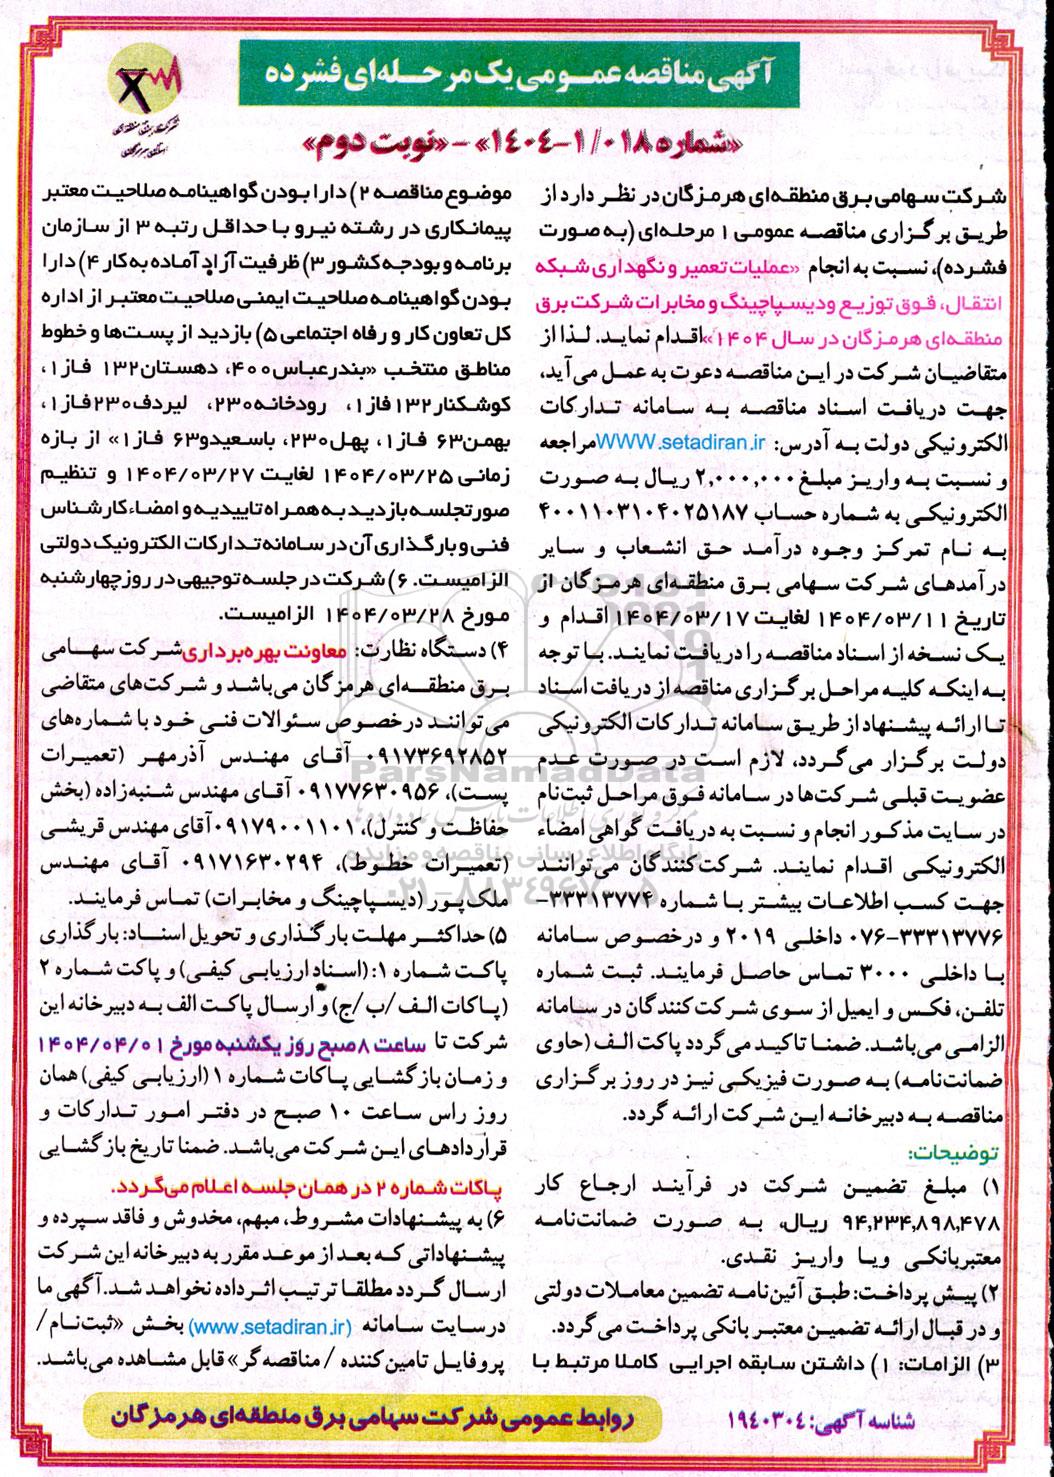 آگهی مناقصه عمومی یک مرحله‌ای فشرده
شرکت برق منطقه‌ای
«شماره ۱/۰۱۸-۱۴۰۴» - «نوبت دوم»
شرکت سهامی برق منطقه‌ای هرمزگان در نظر دارد از
طریق برگزاری مناقصه عمومی ۱ مرحله‌ای (به صورت
فشرده)، نسبت به انجام «عملیات تعمیر و نگهداری شبکه
انتقال، فوق توزیع ودیسپاچینگ و مخابرات شرکت برق
منطقه‌ای هرمزگان در سال ۱۴۰۴» اقدام نماید. لذا از
متقاضیان شرکت در این مناقصه دعوت به عمل می‌آید،
جهت دریافت اسناد مناقصه به سامانه تدارکات
الکترونیکی دولت به آدرس: WWW.setadiran.ir مراجعه
و نسبت به واریز مبلغ ۲,۰۰۰,۰۰۰ ریال به صورت
الکترونیکی به شماره حساب ۴۰۰۱۱۰۳۱۰۴۰۲۵۱۸۷
به نام تمرکز وجوه درآمد حق انشعاب و سایر
درآمدهای شرکت سهامی برق منطقه‌ای هرمزگان از
تاریخ ۱۴۰۴/۰۳/۱۱ لغایت ۱۴۰۴/۰۳/۱۷ اقدام و
یک نسخه از اسناد مناقصه را دریافت نمایند. با توجه
به اینکه کلیه مراحل برگزاری مناقصه از دریافت اسناد
تا ارائه پیشنهاد از طریق سامانه تدارکات الکترونیکی
دولت برگزار می‌گردد، لازم است در صورت عدم
عضویت قبلی شرکت‌ها در سامانه فوق مراحل ثبت‌نام
در سایت مذکور انجام و نسبت به دریافت گواهی امضاء
الکترونیکی اقدام نمایند. شرکت‌کنندگان می‌توانند
جهت کسب اطلاعات بیشتر با شماره ۳۳۳۱۳۷۷۴-
۰۷۶-۳۳۳۱۳۷۷۶ داخلی ۲۰۱۹ و درخصوص سامانه
با داخلی ۳۰۰۰ تماس حاصل فرمایند. ثبت شماره
تلفن، فکس و ایمیل از سوی شرکت‌کنندگان در سامانه
الزامی می‌باشد. ضمنا تاکید می گردد پاکت الف (حاوی
ضمانت‌نامه) به صورت فیزیکی نیز در روز برگزاری
مناقصه به دبیرخانه این شرکت ارائه گردد.
توضیحات:
۱) مبلغ تضمین شرکت در فرآیند ارجاع کار
۹۴,۲۳۴,۸۹۸,۴۷۸ ریال، به صورت ضمانت‌نامه
معتبربانکی ویا واریز نقدی.
۲) پیش پرداخت: طبق آئین‌نامه تضمین معاملات دولتی
و در قبال ارائه تضمین معتبر بانکی پرداخت می گردد.
۳) الزامات: ۱) داشتن سابقه اجرایی کاملا مرتبط با
موضوع مناقصه ۲) دارا بودن گواهینامه صلاحیت معتبر
پیمانکاری در رشته نیرو با حداقل رتبه ۳ از سازمان
برنامه و بودجه کشور ۳) ظرفیت آزاد آماده به کار ۴) دارا
بودن گواهینامه صلاحیت ایمنی صلاحیت معتبر از اداره
کل تعاون کار و رفاه اجتماعی ۵) بازدید از پست‌ها و خطوط
مناطق منتخب «بندرعباس۴۰۰، دهستان۱۳۲ فاز۱،
کوشکنار۱۳۲ فاز۱، رودخانه۲۳۰، لیردف۲۳۰ فاز۱،
بهمن۶۳ فاز۱، پهل۲۳۰، باسعیدو۶۳ فاز۱» از بازه
زمانی ۱۴۰۴/۰۳/۲۵ لغایت ۱۴۰۴/۰۳/۲۷ و تنظیم
صورتجلسه بازدید به همراه تاییدیه و امضاء کارشناس
فنی و بارگذاری آن در سامانه تدارکات الکترونیک دولتی
الزامیست. ۶) شرکت در جلسه توجیهی در روز چهارشنبه
مورخ ۱۴۰۴/۰۳/۲۸ الزامیست.
۴) دستگاه نظارت: معاونت بهره‌برداری شرکت سهامی
برق منطقه‌ای هرمزگان می‌باشد و شرکت‌های متقاضی
می‌توانند درخصوص سئوالات فنی خود با شماره‌های
۰۹۱۷۳۶۹۲۸۵۲ آقای مهندس آذرمهر (تعمیرات
پست)، ۰۹۱۷۷۶۳۰۹۵۶ آقای مهندس شنبه‌زاده (بخش
حفاظت و کنترل)، ۰۹۱۷۹۰۰۱۱۰۱ آقای مهندس قریشی
(تعمیرات خطوط)، ۰۹۱۷۱۶۳۰۲۹۴ آقای مهندس
ملک‌پور (دیسپاچینگ و مخابرات) تماس فرمایند.
۵) حداکثر مهلت بارگذاری و تحویل اسناد: بارگذاری
پاکت شماره ۱: (اسناد ارزیابی کیفی) و پاکت شماره ۲
(پاکات الف/ب/ج) و ارسال پاکت الف به دبیرخانه این
شرکت تا ساعت ۸ صبح روز یکشنبه مورخ ۱۴۰۴/۰۴/۰۱
و زمان بازگشایی پاکات شماره ۱ (ارزیابی کیفی) همان
روز راس ساعت ۱۰ صبح در دفتر امور تدارکات و
قراردادهای این شرکت می‌باشد. ضمنا تاریخ بازگشایی
پاکات شماره ۲ در همان جلسه اعلام می‌گردد.
۶) به پیشنهادات مشروط، مبهم، مخدوش و فاقد سپرده و
پیشنهاداتی که بعد از موعد مقرر به دبیرخانه این شرکت
ارسال گردد مطلقا ترتیب اثر داده نخواهد شد. آگهی ما
درسایت سامانه (www.setadiran.ir) بخش «ثبت‌نام/
پروفایل تامین‌کننده / مناقصه گر» قابل مشاهده می‌باشد.
شناسه آگهی: ۱۹۴۰۳۰۴
روابط عمومی شرکت سهامی برق منطقه‌ای هرمزگان
ParsNamadData
پایگاه اطلاع رسانی مناقصه و مزایده